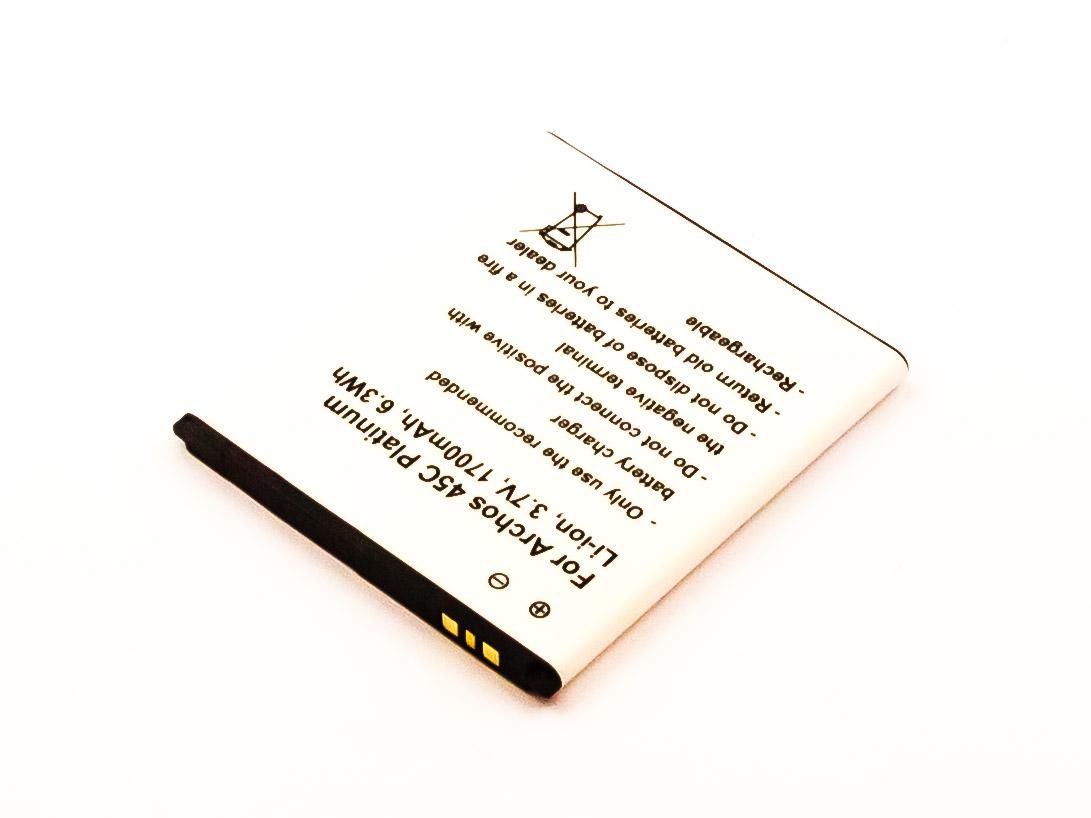 For Archos 45C Platinum
Li-ion, 3.7V, 1700mAh, 6.3Wh
- Only use the recommended
battery charger
- Do not connect the positive with
the negative terminal
- Do not dispose of batteries in a fire
- Return old batteries to your dealer
- Rechargeable